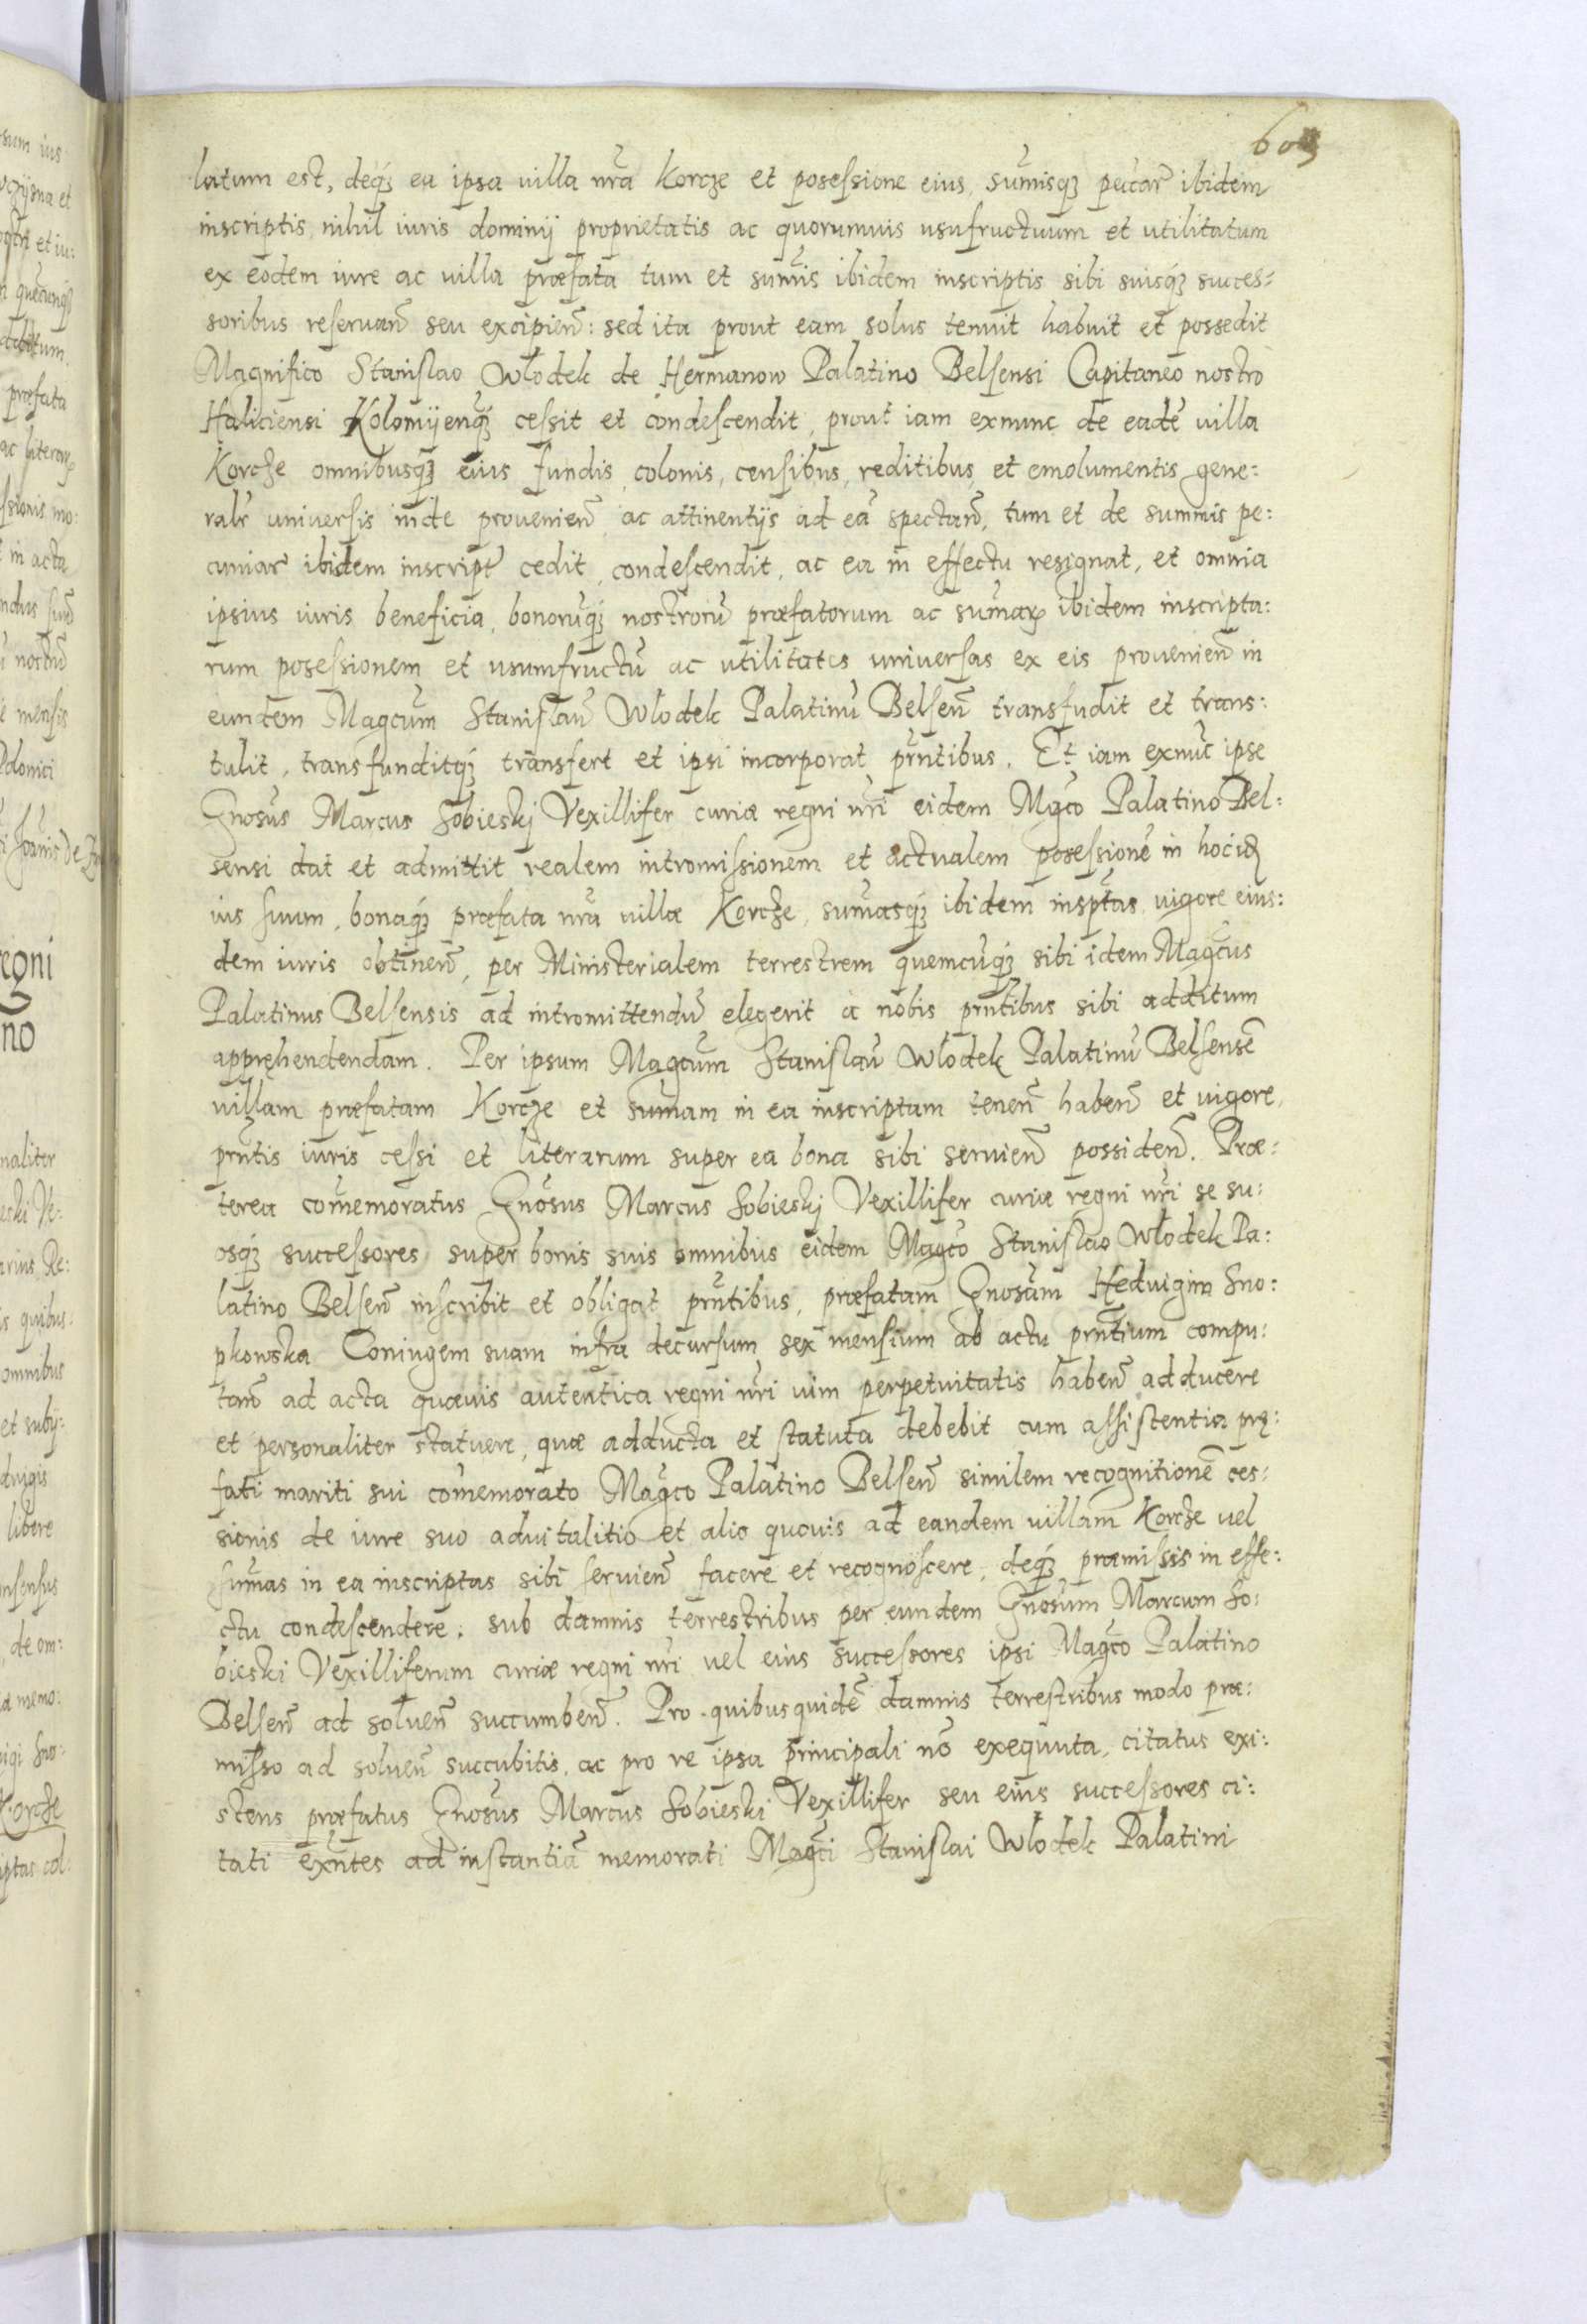 603
latum est, deq₃ ea ipsa villa nr̃a Korcze et posessione eius, sum̃isq₃ pecũar ibidem
inscriptis, nihil iuris dominij proprietatis ac quorumuis usufructuum et utilitatum
ex eodem iure ac villa præfata tum et sum̃is ibidem inscriptis sibi suisq₃ succes:
soribus reseruañ seu excipieñ: sed ita prout eam solus tenuit habuit et possedit
Magnifico Stanislao Włodek de Hermanow Palatino Belsensi Capitaneo nostro
Haliciensi Kolomijenq₃ cessit et condescendit, prout iam exnunc de eadẽ villa
Korcze omnibusq₃ eius fundis, colonis, censibus, reditibus, et emolumentis gene:
ralr universis inde provenieñ ac attinentijs ad eã spectañ, tum et de summis pe:
cuniar ibidem inscript cedit, condescendit, ac ea in effectu resignat, et omnia
ipsius iuris beneficia, bonorũq₃ nostrorũ præfatorum ac sum̃aꝝ ibidem inscripta:
rum posessionem et usumfructũ ac utilitates universas ex eis provenieñ in
eundem Magcum Stanislaũ Włodek Palatinũ Belseñ transfudit et trans:
tulit, transfunditq₃ transfert et ipsi incorporat prñtibus. Et iam exnũc ipse
Gnosus Marcus Sobieskj Vexillifer curiæ regni nr̃i eidem Mgco Palatino Bel:
sensi dat et admittit realem intromissionem et actualem posessionẽ in hoc
ius suum, bonaq₃ præfata nr̃a villæ Korcze, sum̃asq₃ ibidem insptas vigore eius:
dem iuris obtineñ, per Ministerialem terrestrem quemcũq₃ sibi idem Magcus
Palatinus Belsensis ad intromittendũ elegerit a nobis prñtibus sibi additum
apprehendendam. Per ipsum Magcum Stanislaũ Włodek Palatinũ Belsensẽ
villam præfatam Korcze et sum̃am in ea inscriptam teneñ habeñ et vigore
prñtis iuris cessi et literarum super ea bona sibi servieñ possideñ. Præ:
terea com̃emoratus Gnosus Marcus Sobieskj Vexillifer curiæ regni nr̃i se su:
osq₃ successores super bonis suis omnibus eidem Magco Stanislao Włodek Pa:
latino Belseñ inscribit et obligat prñtibus, præfatam Gnosam Hedvigim Sno:
pkowska Coniugem suam infra decursum sex mensium ab actu prñtium compu:
tañ ad acta quævis autentica regni nr̃i vim perpetuitatis habeñ adducere
et personaliter statuere, quæ adducta et statuta debebit cum assistentia prę:
fati mariti sui com̃emorato Magco Palatino Belseñ similem recognitionẽ ces:
sionis de iure suo advitalitio et alio quovis ad eandem villam Korcze vel
sum̃as in ea inscriptas sibi servieñ facere et recognoscere, deq₃ præmissis in effe:
ctu condescendere. sub damnis terrestribus per eundem Gnosum Marcum So:
bieski Vexilliferum curiæ regni nr̃i vel eius successores ipsi Magco Palatino
Belseñ ad solueñ succumbeñ. Pro quibusquidẽ damnis terrestribus modo præ:
misso ad solueñ succubitis, ac pro re ipsa principali nõ exequuta, citatus exi:
stens præfatus Gnosus Marcus Sobieski Vexillifer seu eius successores ci:
tati exñtes ad instantiã memorati Magci Stanislai Włodek Palatini